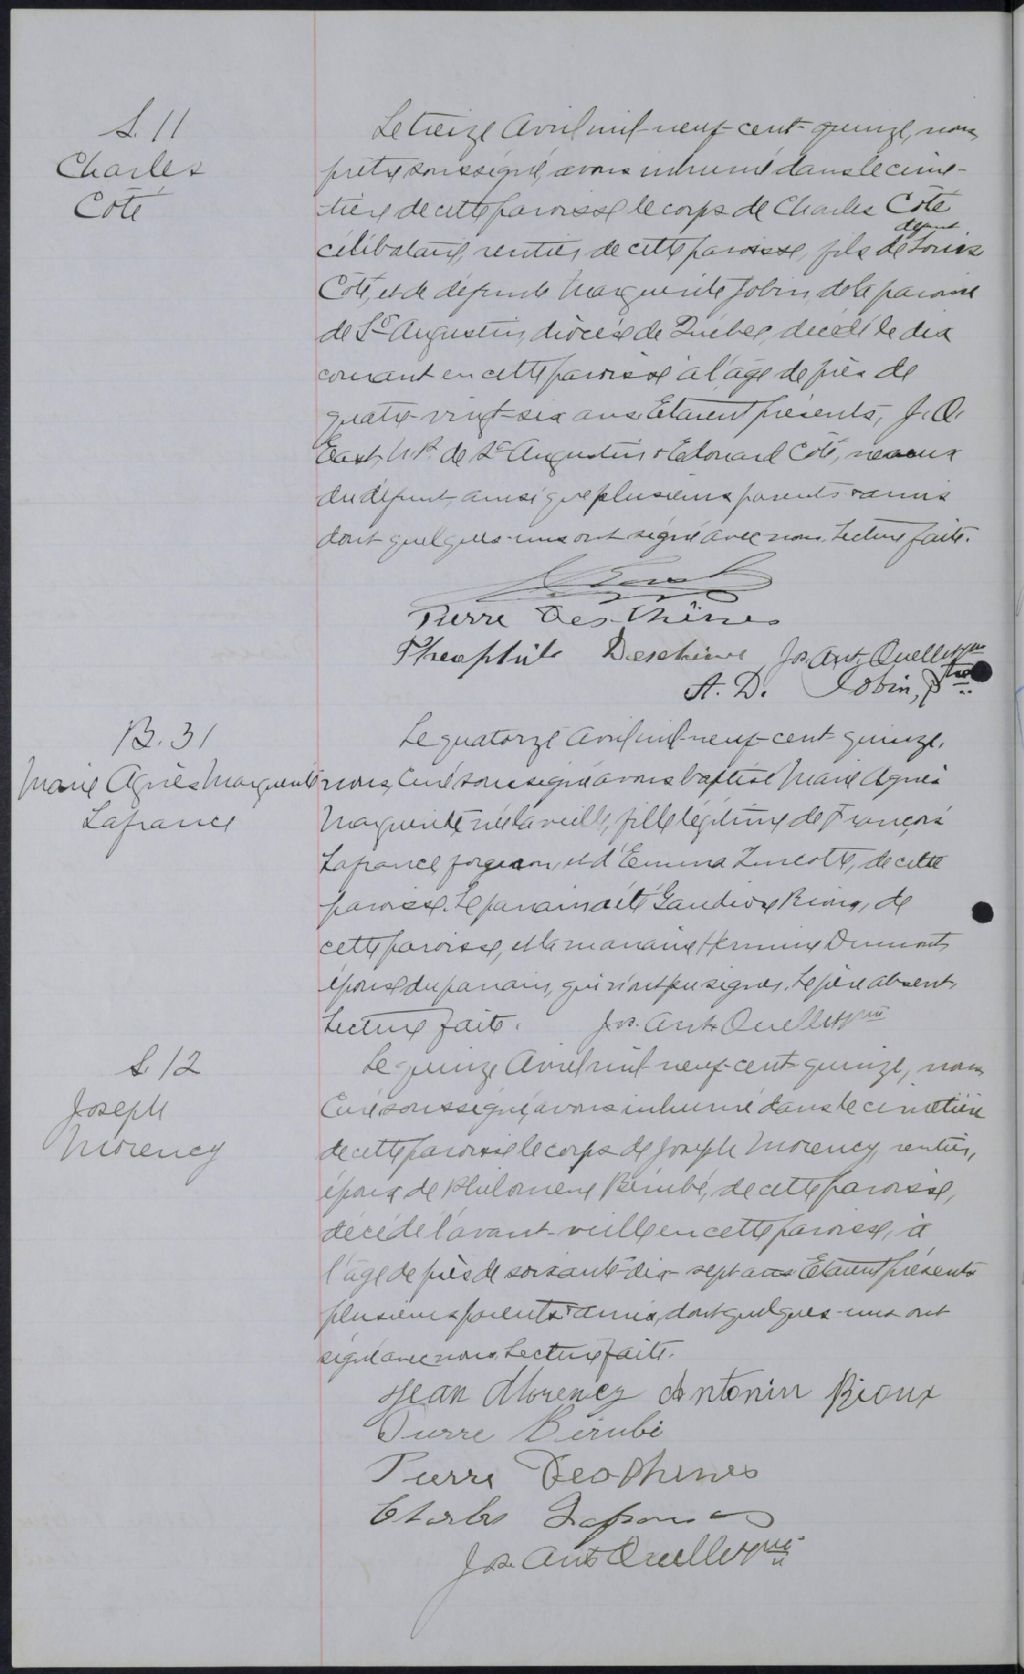 S. 11
Charles
Côté
Le treize Avril mil-neuf-cent-quinze, nous
prêtre soussigné, avons inhumé dans le cime-
tière de cette paroisse le corps de Charles Côté
célibataire, rentier de cette paroisse, fils de défunt Louis
Côté, et de défunte Marguerite Jobin, de la paroisse
de St Augustin, diocèse de Québec, décédé le dix
courant en cette paroisse à l'âge de près de
quatre-vingt-six ans. Etaient présents, J. O.
East, N.P. de St Augustin & Edouard Côté, neveux
du défunt, ainsi que plusieurs parents & amis
dont quelques-uns ont signé avec nous. Lecture faite.
Pierre DesChênes
Theophile Deschene Jos. Ant. Ouellet ptre
A. D. Jobin, Ptre
B. 31
Marie Agnès Marguerite
Lafrance
Le quatorze Avril mil-neuf-cent-quinze,
nous, Curé soussigné avons baptisé Marie Agnès
Marguerite née la veille, fille légitime de François
Lafrance forgeron, et d'Emma Turcotte, de cette
paroisse. Le parrain a été Gaudiose Rioux, de
cette paroisse, et la marraine Hermine Dumont,
épouse du parrain, qui n'ont pu signer. Le père absent.
Lecture faite. Jos. Ant. Ouellet ptre
S. 12
Joseph
Morency
Le quinze Avril mil-neuf-cent-quinze, nous
Curé soussigné, avons inhumé dans le cimetière
de cette paroisse le corps de Joseph Morency, rentier,
époux de Philomène Bérubé, de cette paroisse,
décédé l'avant-veille en cette paroisse, à
l'âge de près de soixante-dix-sept ans. Etaient présents
plusieurs parents & amis, dont quelques-uns ont
signé avec nous. Lecture faite.
Jean Morency Antonin Rioux
Pierre Bérubé
Pierre DesChenes
Charles
Jos. Ant. Ouellet ptre